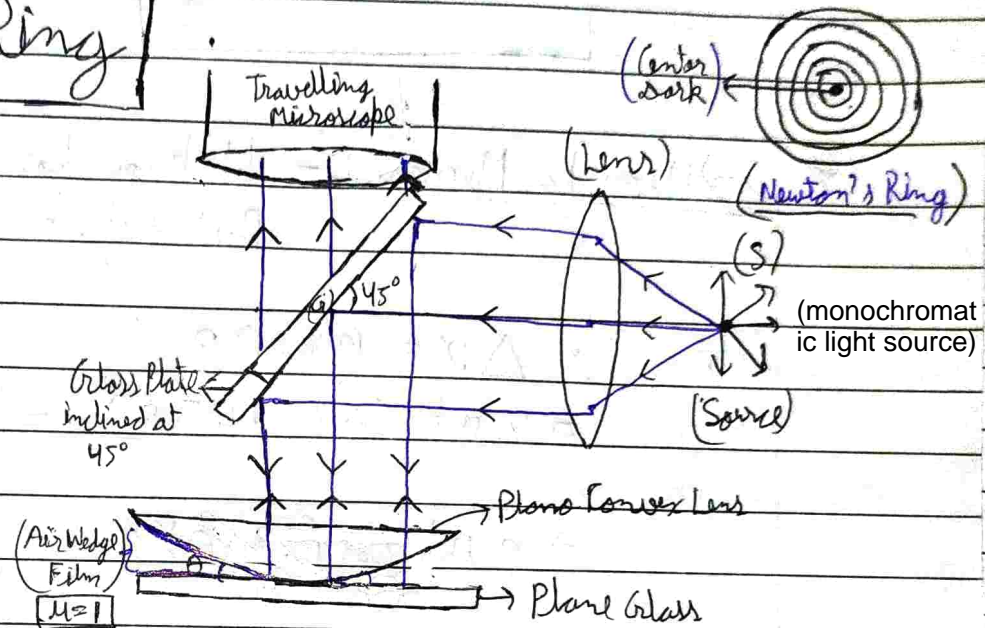 Ring
Travelling
Microscope
(Center
Dark)
(Lens)
(Newton's Ring)
(S)
(monochromat
ic light source)
(Source)
(G)
45°
Glass Plate
inclined at
45°
Plano Convex Lens
(Air Wedge
Film)
θ
μ=1
Plane Glass